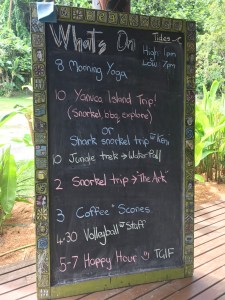 What's On
Tides~
High: 1pm
Low: 7pm
8 Morning Yoga
10 Yanuca Island Trip!
(Snorkel, bbq, explore)
or
Shark snorkel trip w Keni
10 Jungle trek → Waterfall
2 Snorkel trip → "The Ark"
3 Coffee + Scones
4.30 Volleyball w Staff
5-7 Happy Hour TGIF